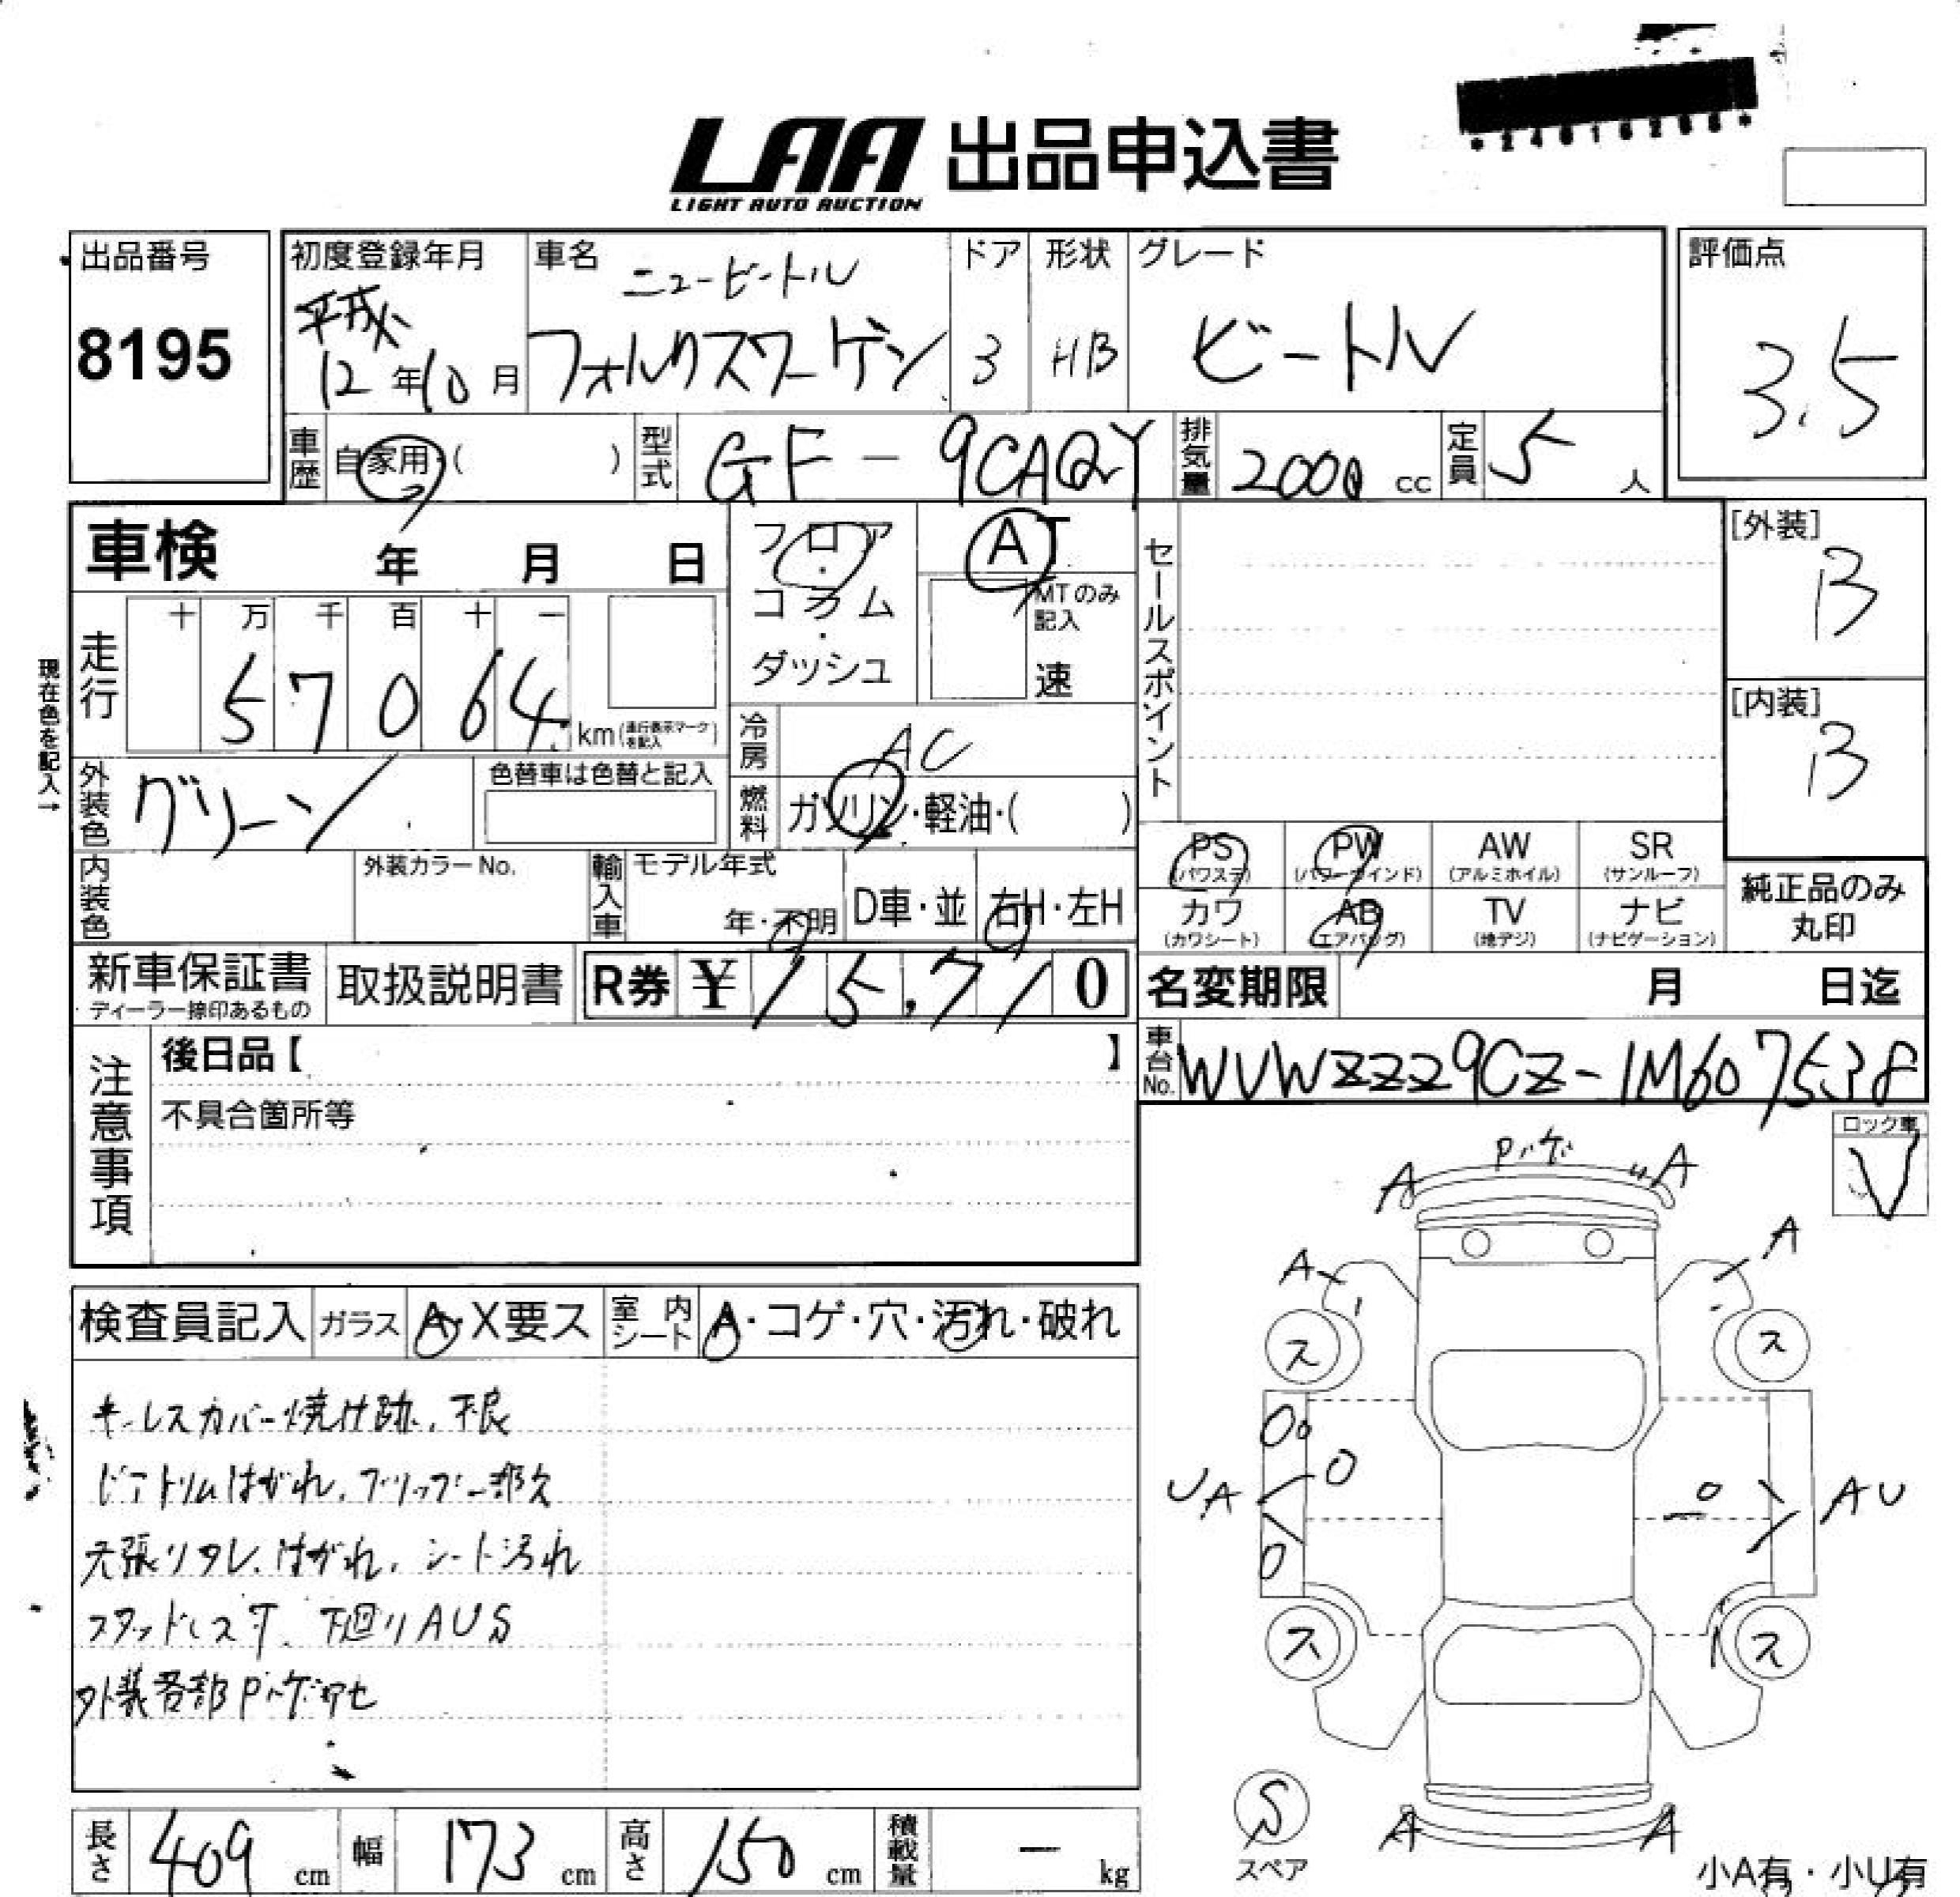 LAA 出品申込書
LIGHT AUTO AUCTION
出品番号
8195
初度登録年月
平成
12年10月
車名
ニュービートル
フォルクスワーゲン
ドア
3
形状
HB
グレード
ビートル
評価点
3.5
車歴
自家用・( )
型式
GF-9CAQY
排気量
2000 cc
定員
5 人
車検 年 月 日
フロア・コラム・ダッシュ
AT
MTのみ記入
速
セールスポイント
[外装]
B
[内装]
B
現在色を記入→
走行
十 万 千 百 十 一
5 7 0 6 4
km(走行表示マークを記入)
冷房
AC
外装色
グリーン
色替車は色替と記入
燃料
ガソリン・軽油・( )
PS
(パワステ)
PW
(パワーウインド)
AW
(アルミホイル)
SR
(サンルーフ)
内装色
外装カラーNo.
輸入車
モデル年式
年・不明
D車・並
右H・左H
カワ
(カワシート)
AB
(エアバッグ)
TV
(地デジ)
ナビ
(ナビゲーション)
純正品のみ
丸印
新車保証書
ディーラー捺印あるもの
取扱説明書
R券 ¥15,710
名変期限 月 日迄
注意事項
後日品【 】
不具合箇所等
車台No.
WVWZZZ9CZ-1M607538
ロック車
V
Pハゲ
A
A
A
A
検査員記入
ガラス
A・X要ス
室内シート
A・コゲ・穴・汚れ・破れ
キーレスカバー焼付跡、不良
ドアトリムはがれ、グリップ一部欠
天張りタレ、はがれ、シート汚れ
スタッドレス付、下廻りAUS
外装各部Pハゲ、アセ
ス
ス
UA
AU
ス
ス
S
スペア
A
A
長さ
409 cm
幅
173 cm
高さ
150 cm
積載量
— kg
小A有・小U有